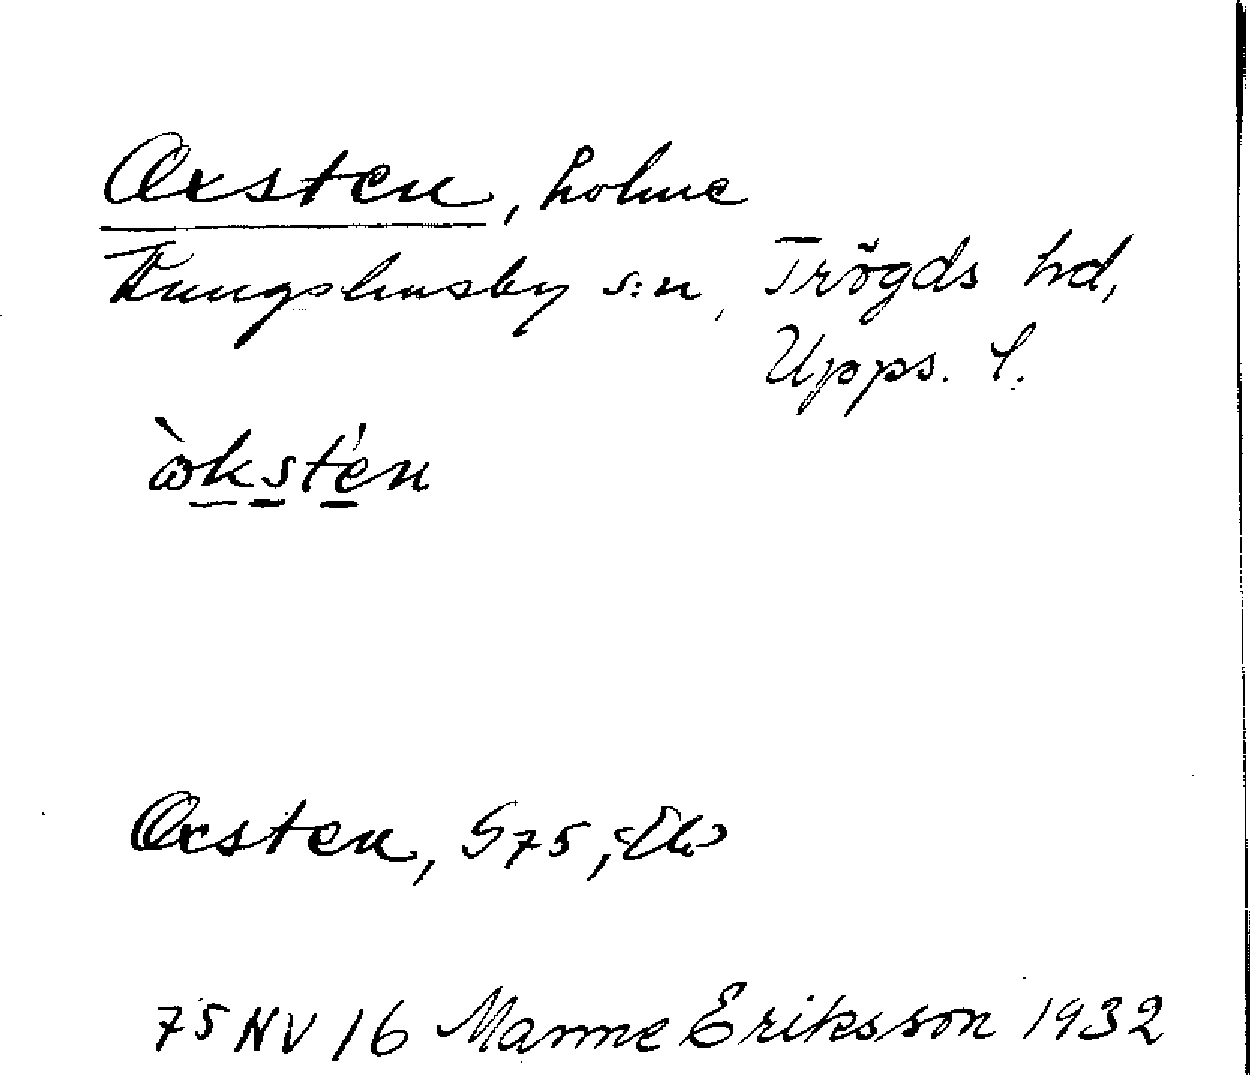 Oxsten, holme
Kungshusby s:n, Trögds hd,
Upps. l.
ὼkstén
Oxsten, S75, Ek
75 NV 16 Manne Eriksson 1932